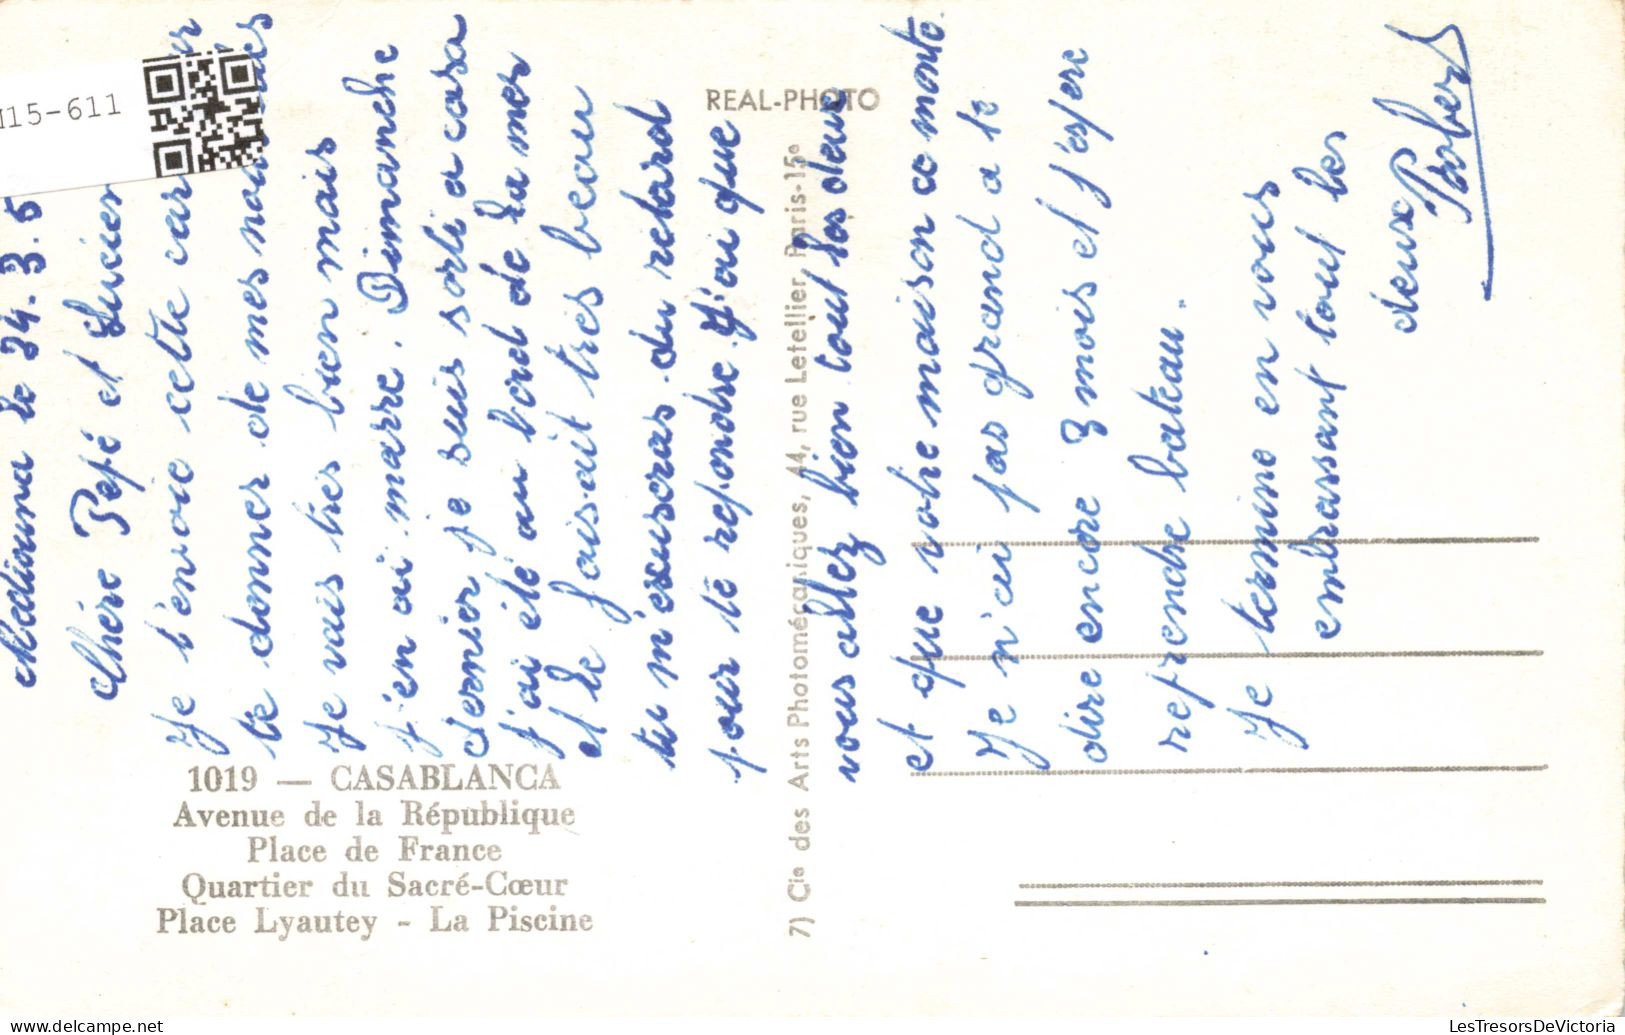 Mediouna le 24.3.5
Chère Pepé et Lucien
Je t'envoie cette car
te donner de mes nouvelles
Je vais tres bien mais
j'en ai marre. Dimanche
dernier je suis sorti a casa
j'ai été au bord de la mer
et le faisait tres beau
tu m'excuseras du retard
pour te repondre J'ai que
vous allez bien tout les deux
et que votre maison ce monte.
Je n'ai pas grand a te
dire encore 3 mois et j'espere
reprendre bateau.
Je termine en vous
embrassant tout les
deux
Robert
REAL-PHOTO
7) Cie des Arts Photomécaniques, 44, rue Letellier, Paris-15e
1019 — CASABLANCA
Avenue de la République
Place de France
Quartier du Sacré-Cœur
Place Lyautey - La Piscine
M15-611
LesTresorsDeVictoria
delcampe.net